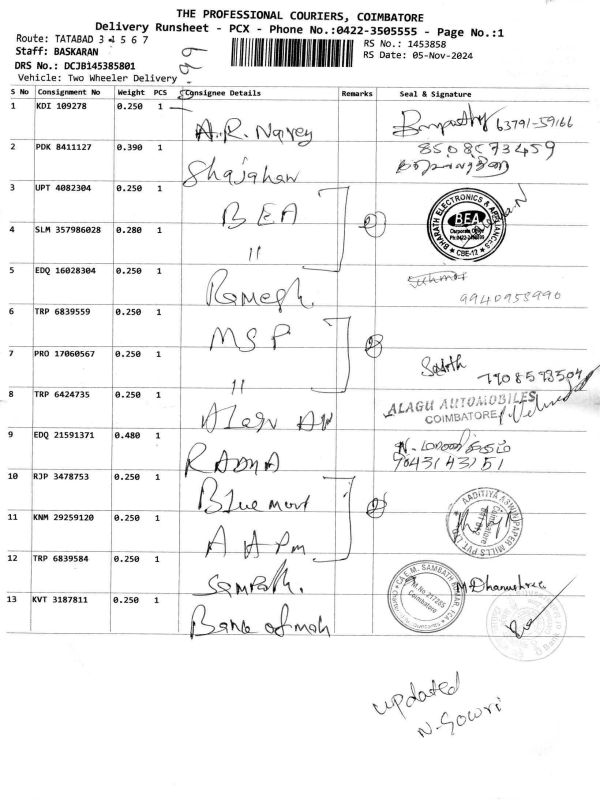 THE PROFESSIONAL COURIERS, COIMBATORE
Delivery Runsheet - PCX - Phone No.:0422-3505555 - Page No.:1
Route: TATABAD 3 4 5 6 7
RS No.: 1453858
Staff: BASKARAN
RS Date: 05-Nov-2024
DRS No.: DCJB145385801
Vehicle: Two Wheeler Delivery
S No Consignment No Weight PCS Consignee Details Remarks Seal & Signature
1 KDI 109278 0.250 1 63791-59166
2 PDK 8411127 0.390 1 Shajahan 8508573459
3 UPT 4082304 0.250 1 BEA 2
BHARATH ELECTRONICS & APPLIANCES
BEA
Corporate Office
CBE-12
4 SLM 357986028 0.280 1 "
5 EDQ 16028304 0.250 1 Ramesh. 9940958990
6 TRP 6839559 0.250 1 MSP 2
7 PRO 17060567 0.250 1 " 7708593504
8 TRP 6424735 0.250 1 ALAGU AUTOMOBILES
COIMBATORE
9 EDQ 21591371 0.480 1 RADHA N. மாணிக்கம்
9043143151
10 RJP 3478753 0.250 1 Blue mount 2
AADITIYA ASWIN PAPER MILLS PVT. LTD
Coimbatore
11 KNM 29259120 0.250 1 AAPM
12 TRP 6839584 0.250 1 Sampath. M Dhanushree
CA E.M. SAMBATH KUMAR, FCA
M.No.217285
Coimbatore
13 KVT 3187811 0.250 1 Bank of mah
updated
N-Gowri